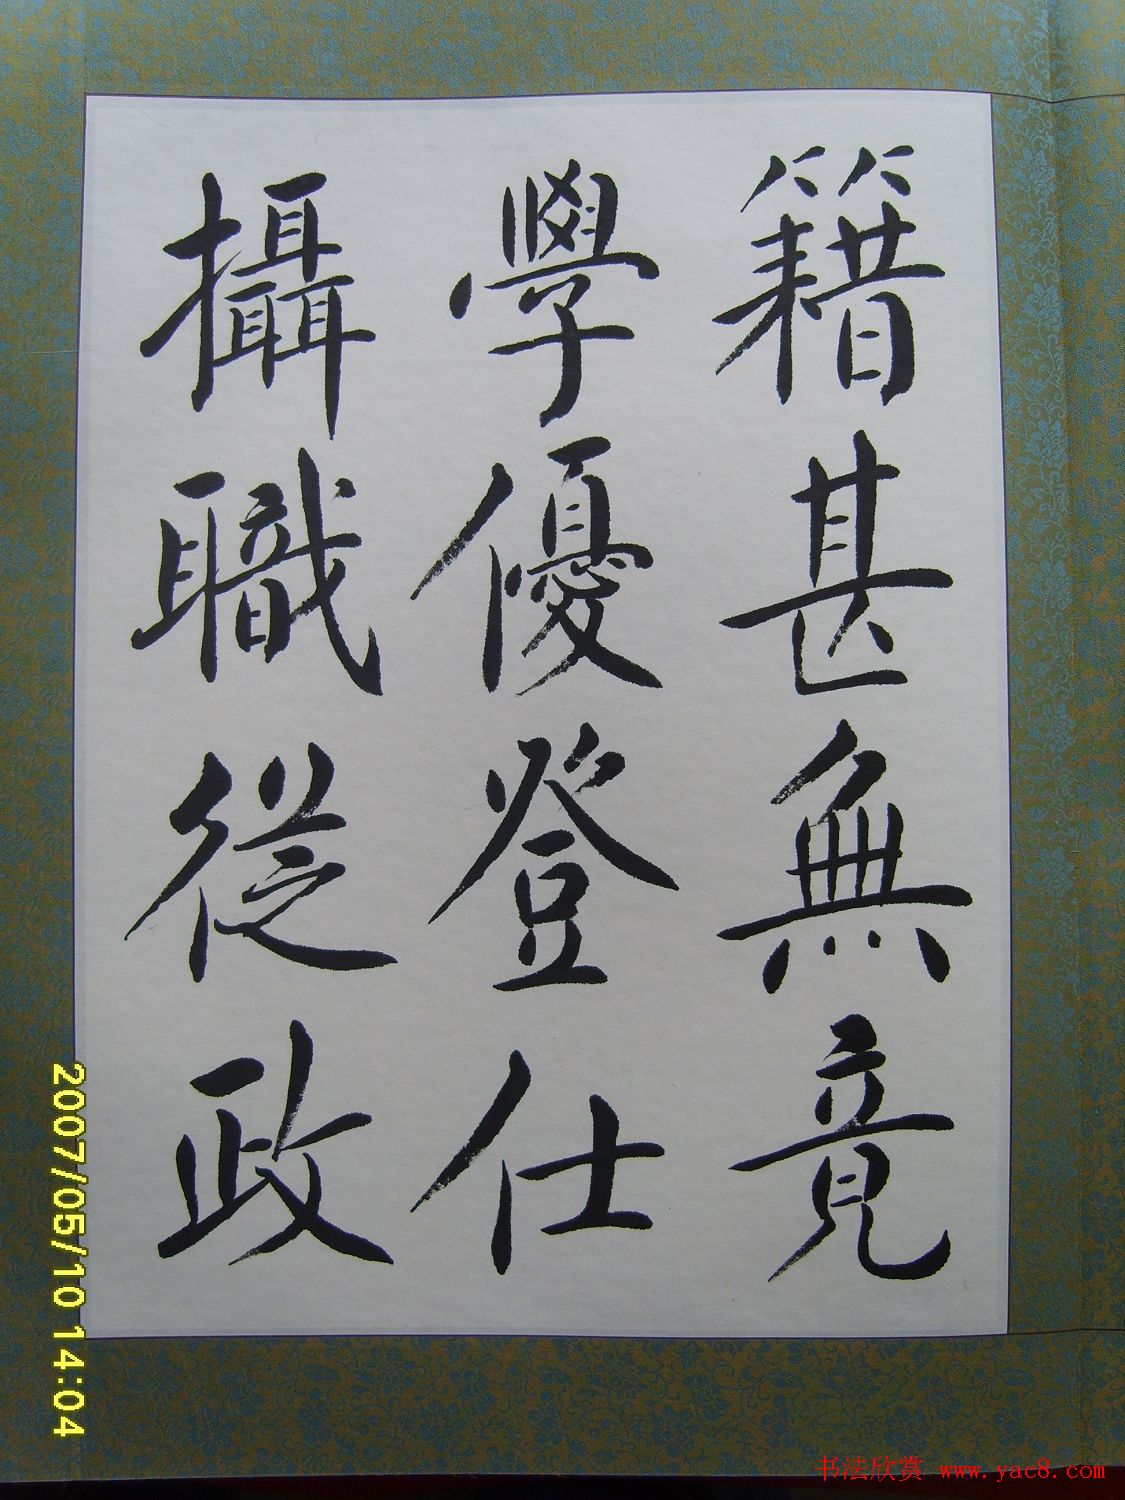 籍甚無竟
學優登仕
攝職從政
2007/05/10 14:04
书法欣赏 www.yac8.com